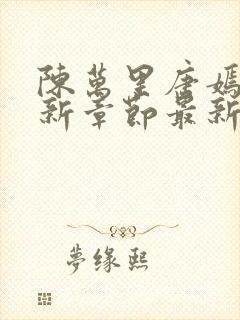 陳萬里唐嫣
新章節最新
夢缘熙